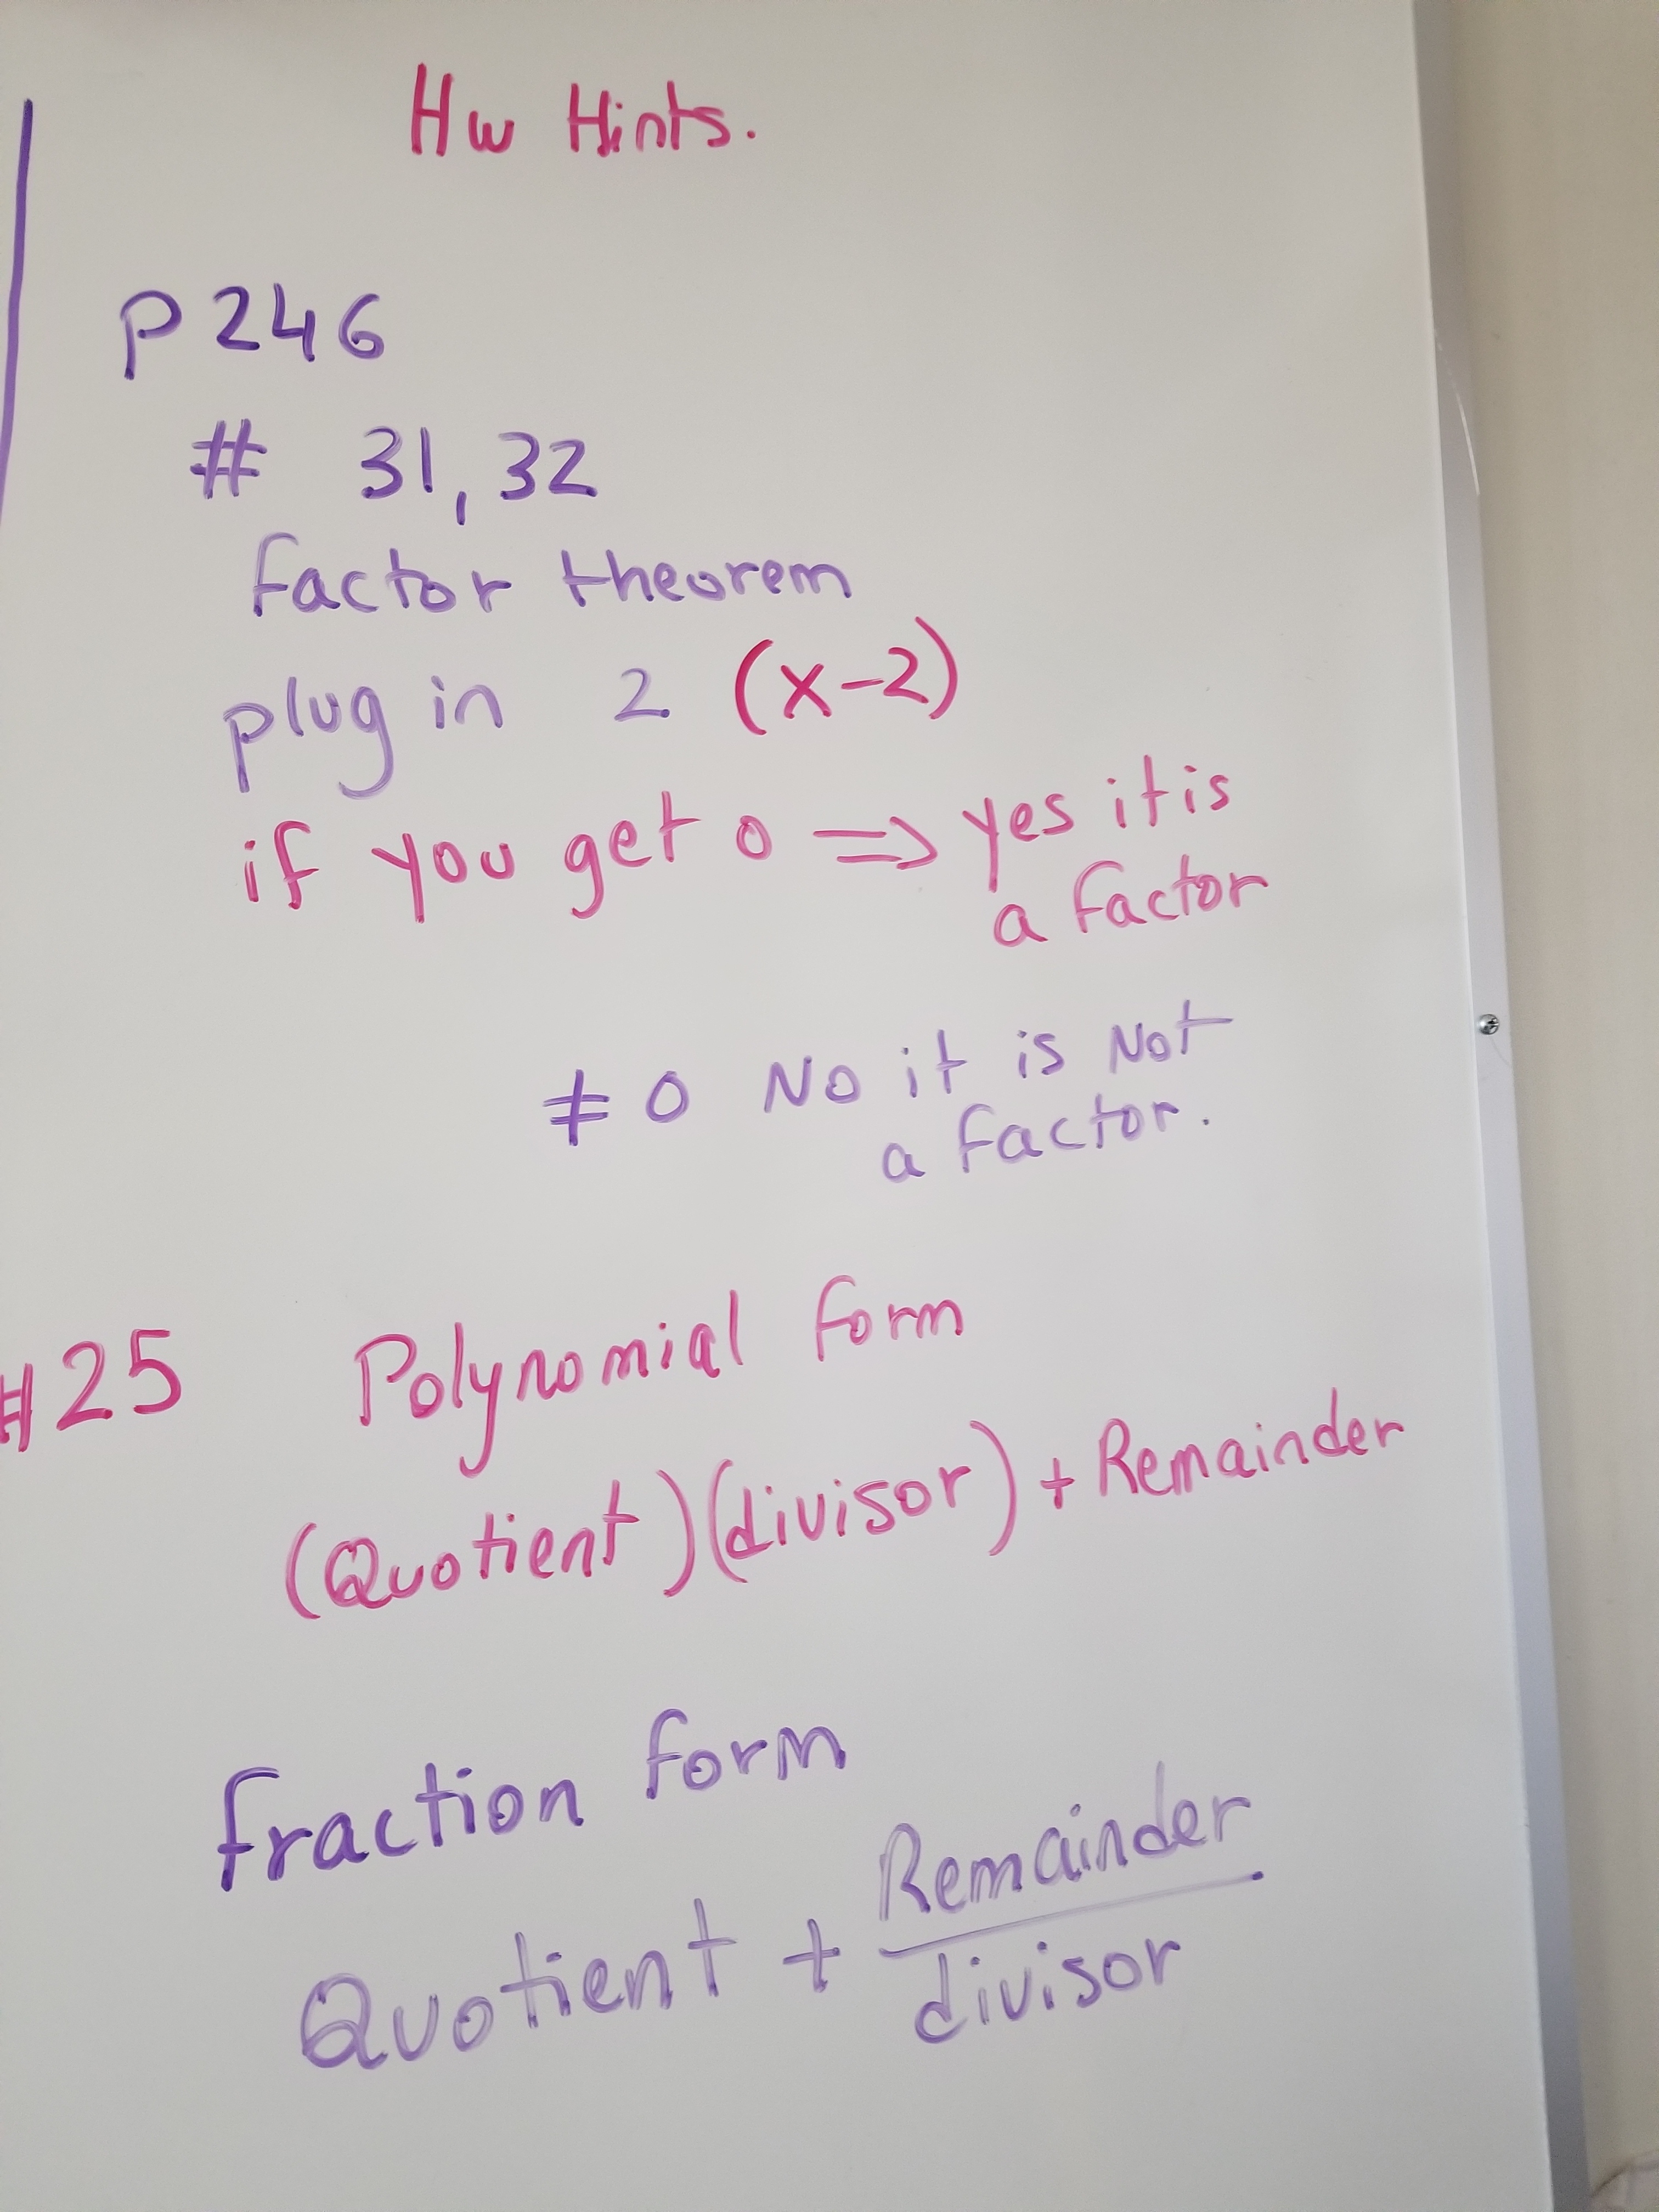 Hw Hints.
P 246
# 31, 32
factor theorem
plug in 2 (x-2)
if you get 0 => yes it is
a factor
≠ 0 No it is Not
a factor.
#25 Polynomial form
(Quotient)(divisor) + Remainder
fraction form
Quotient + Remainder
divisor